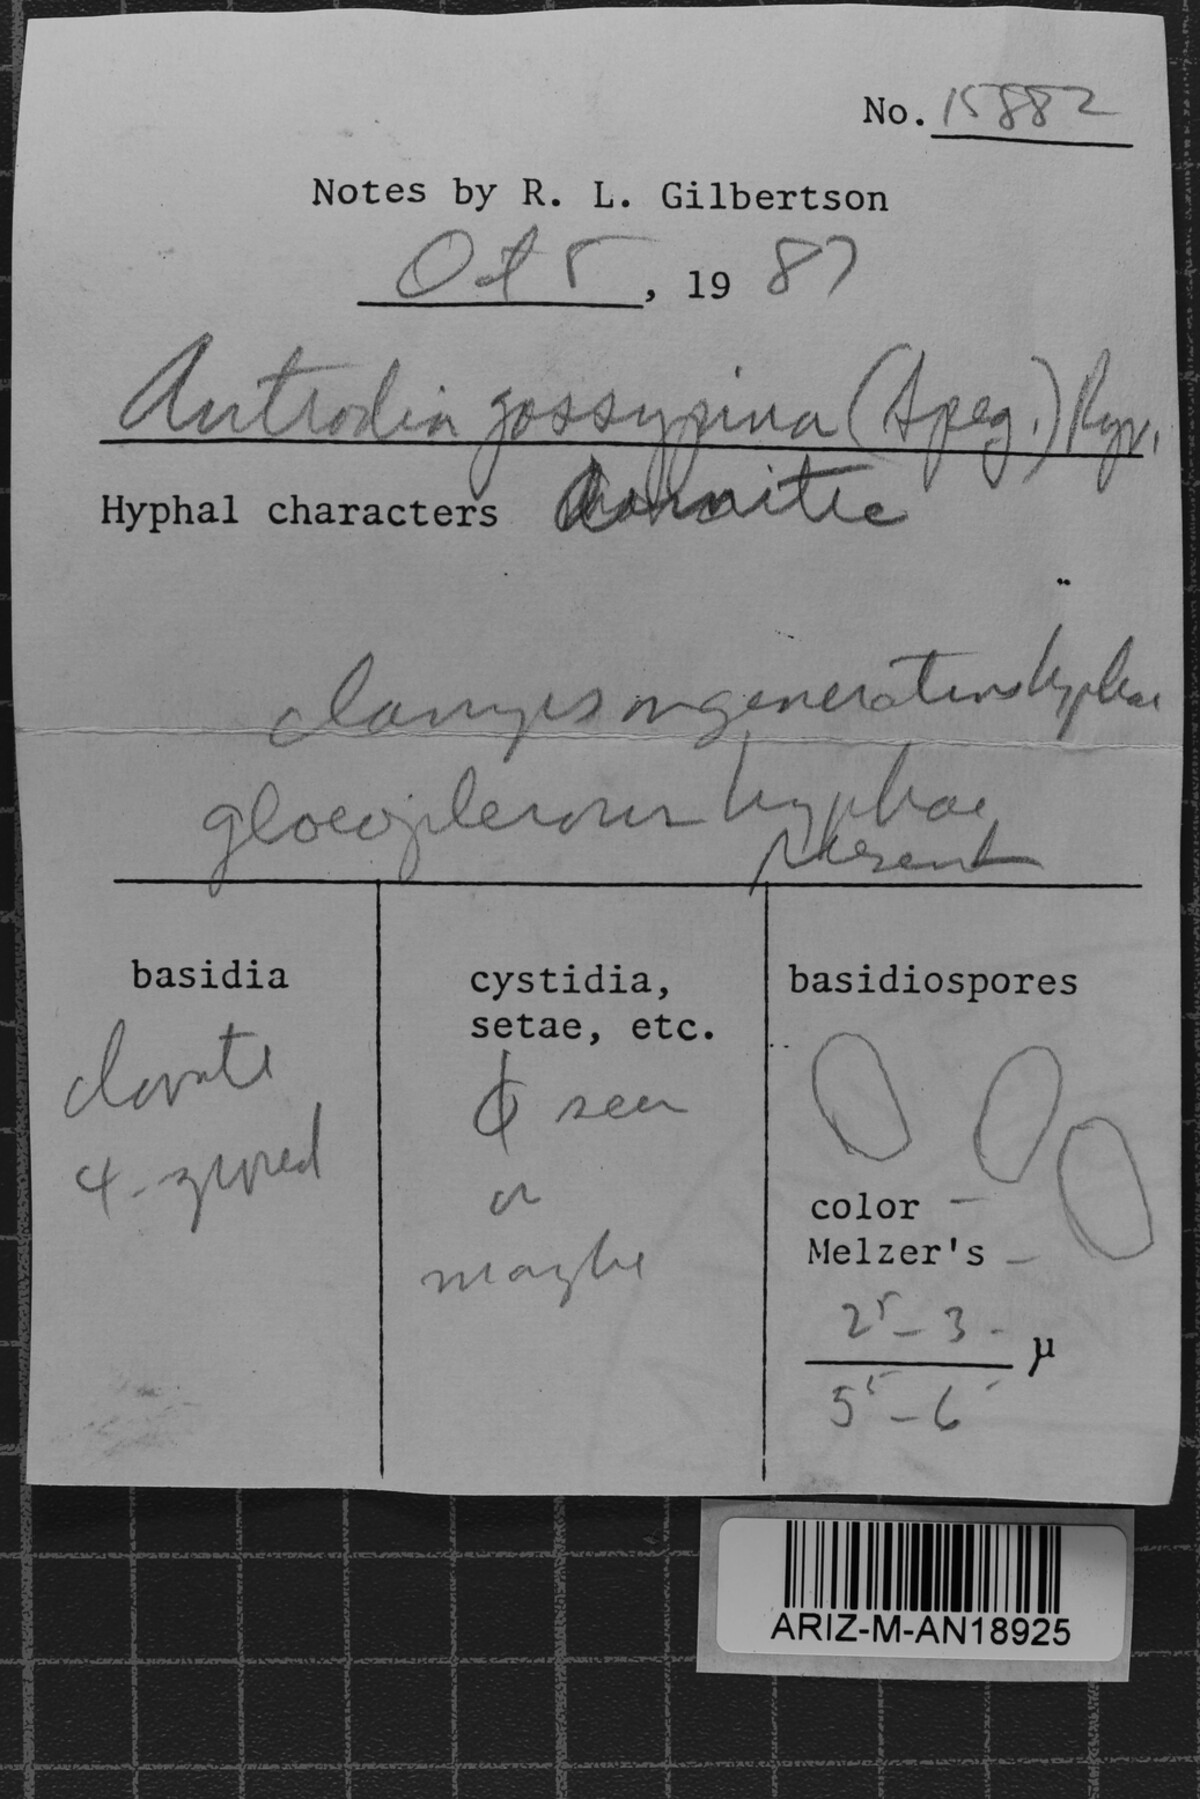 No. 15882
Notes by R. L. Gilbertson
Oct 5, 19 87
Antrodia gossypina (Speg.) Ryv.
Hyphal characters
clamps on generative hyphae
gloeoplerous hyphae
present
basidia
clavate
4-spored
cystidia,
setae, etc.
ϕ seen
or
maybe
basidiospores
color –
Melzer's –
2⁵ – 3 µ
5⁵ – 6
ARIZ-M-AN18925